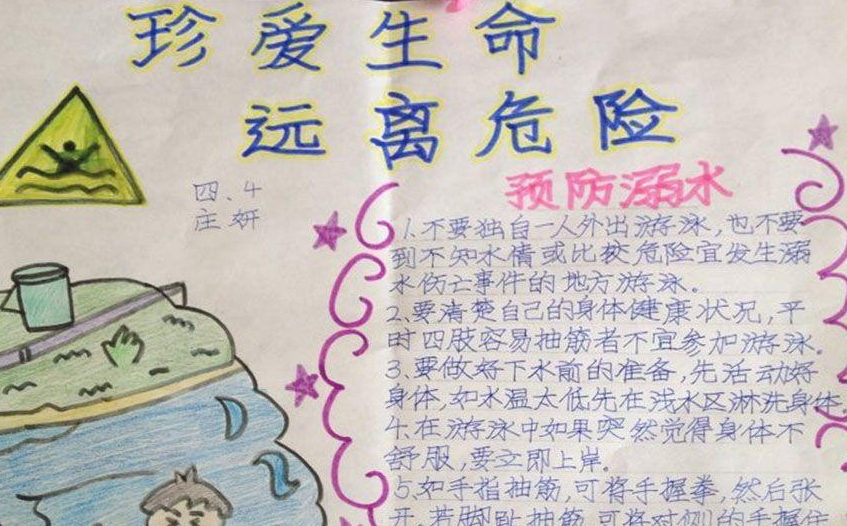 珍爱生命
远离危险
四、4
庄妍
预防溺水
1.不要独自一人外出游泳,也不要
到不知水情或比较危险宜发生溺
水伤亡事件的地方游泳。
2.要清楚自己的身体健康状况,平
时四肢容易抽筋者不宜参加游泳。
3.要做好下水前的准备,先活动好
身体,如水温太低先在浅水区淋洗身体
4.在游泳中如果突然觉得身体不
舒服,要立即上岸。
5.如手指抽筋,可将手握拳,然后张
开,若脚趾抽筋,可将对侧的手握住